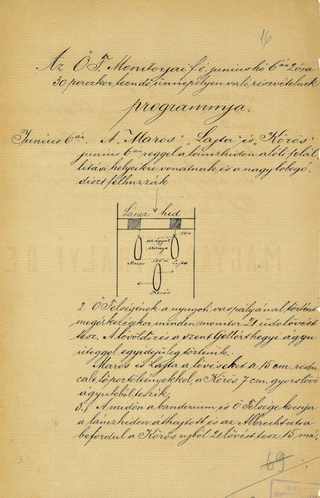 16
Az Ő F. Monitorjai f. é. junius hó 6-án 2 óra
30 perczkor leendő ünnepélyen való részvételnek
programmja.
Junius 6án. A „Maros" „Lajta" és „Körös"
junius 6án reggel a lánczhidon alóli felál-
lítási helyeikre vonatnak és a nagy lobogó-
díszt felhuzzák.
Láncz hid
Maros
Lajta
Körös
2. Ő Felségének a nyugoti vaspályánál történt
megérkezésekor minden monitor 21 üdvlövést
tesz. A lövöldözés a szent Gellérthegyi ágyu
üteggel egyidejüleg történik.
Maros és Lajta a lövéseket a 15 cm.
cale töltényekkel, a Körös 7 cm. gyorslövő
ágyukból teszik.
3.) A midőn a banderium és Ő Felsége kocsija
a lánczhidon áthajtott és az Albrecht utra
befordul a Körös ujból 21 lövést tesz 15 má-
69